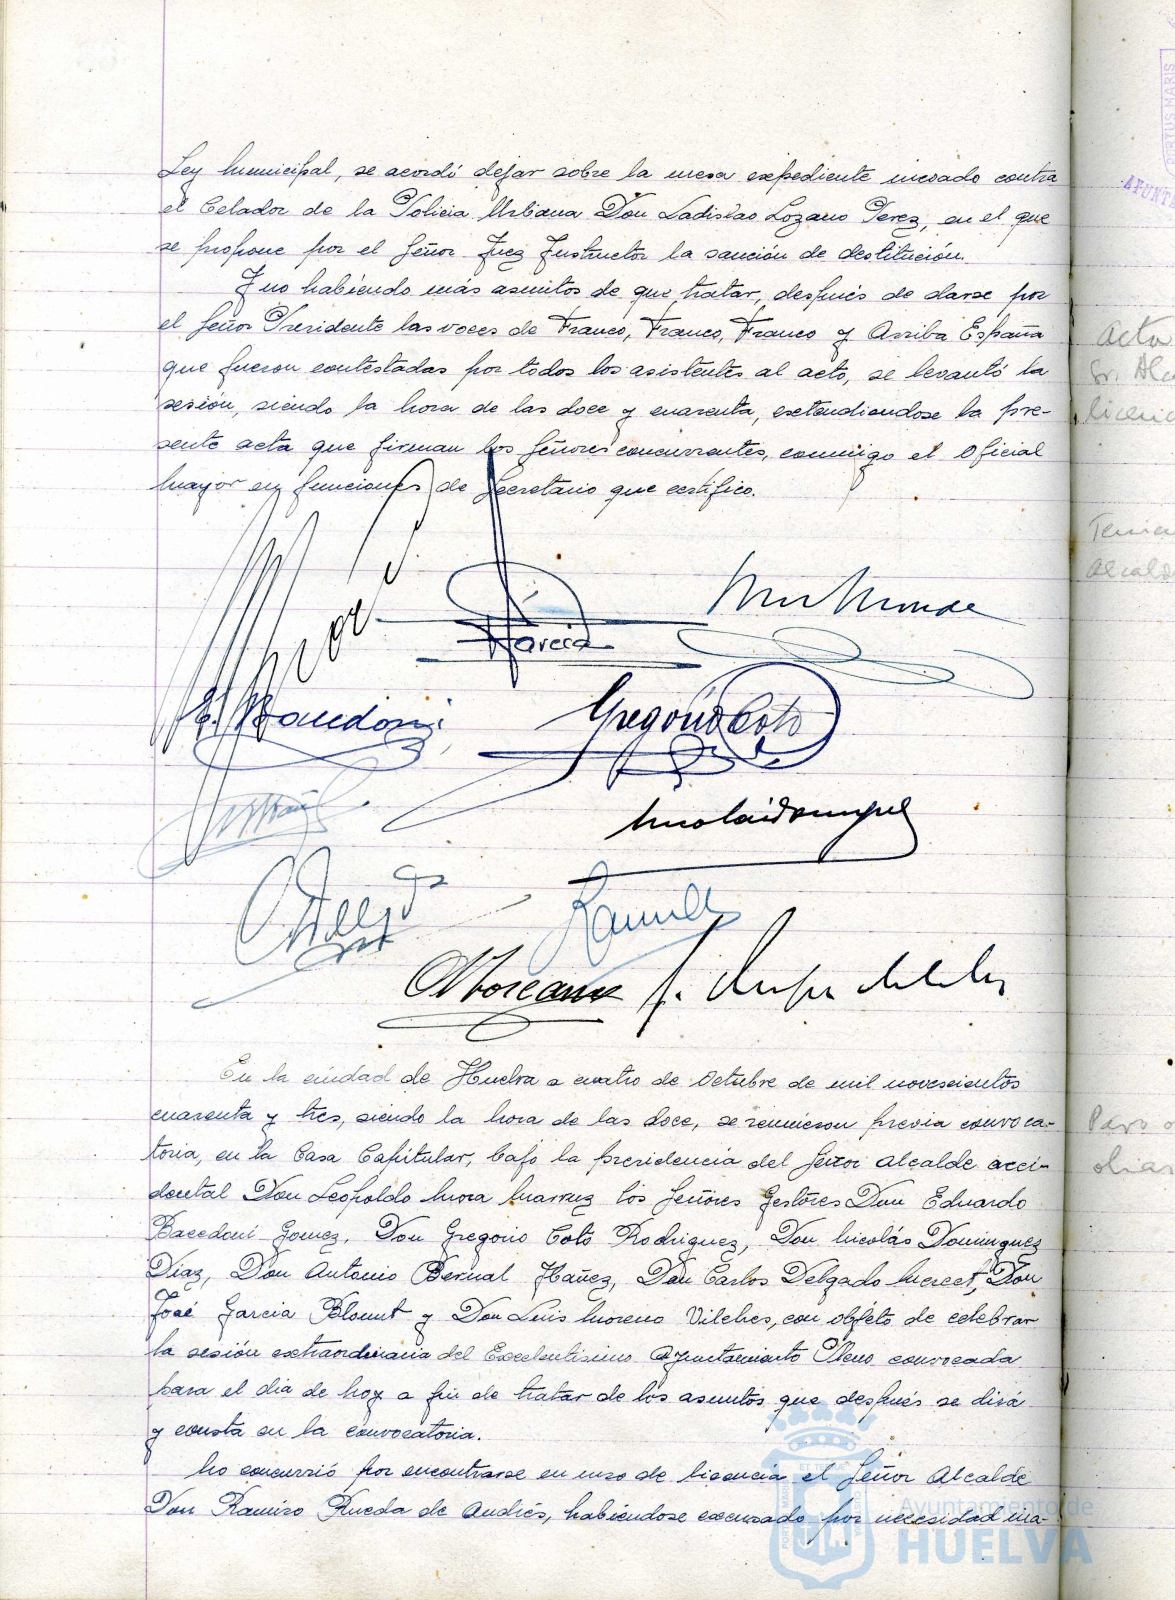 Ley Municipal, se acordó dejar sobre la mesa expediente incoado contra
el Celador de la Policia Urbana Don Ladislao Lozano Perez, en el que
se propone por el Señor Juez Instructor la sanción de destitución.
Y no habiendo más asuntos de que tratar, después de darse por
el Señor Presidente las voces de Franco, Franco, Franco y Arriba España
que fueron contestadas por todos los asistentes al acto, se levantó la
sesión, siendo la hora de las doce y cuarenta, extendiendose la pre-
sente acta que firman los Señores concurrentes, conmigo el Oficial
Mayor en funciones de Secretario que certifico.
Garcia
E. Bacedoni
Gregorio Coto
Nicolas Dominguez
En la ciudad de Huelva a cuatro de Octubre de mil novescientos
cuarenta y tres, siendo la hora de las doce, se reunieron previa convoca-
toria, en la Casa Capitular, bajo la presidencia del Señor Alcalde acci-
dental Don Leopoldo Mora los Señores Gestores Don Eduardo
Bacedoni Gomez, Don Gregorio Coto Rodriguez, Don Nicolás Dominguez
Diaz, Don Antonio Bernal Ibañez, Don Carlos Delgado Don
José Garcia Blount y Don Luis Moreno Vilches, con objeto de celebrar
la sesión extraordinaria del Excelentisimo Ayuntamiento Pleno convocada
para el dia de hoy a fin de tratar de los asuntos que después se dirá
y consta en la convocatoria.
No concurrió por encontrarse en uso de licencia el Señor Alcalde
Don Ramiro Rueda de Andrés, habiendose excusado por necesidad ma-
acta
Sr. Alc
licenc
Tenien
alcald
Paro o
Ayuntamiento de
HUELVA
AYUNTA